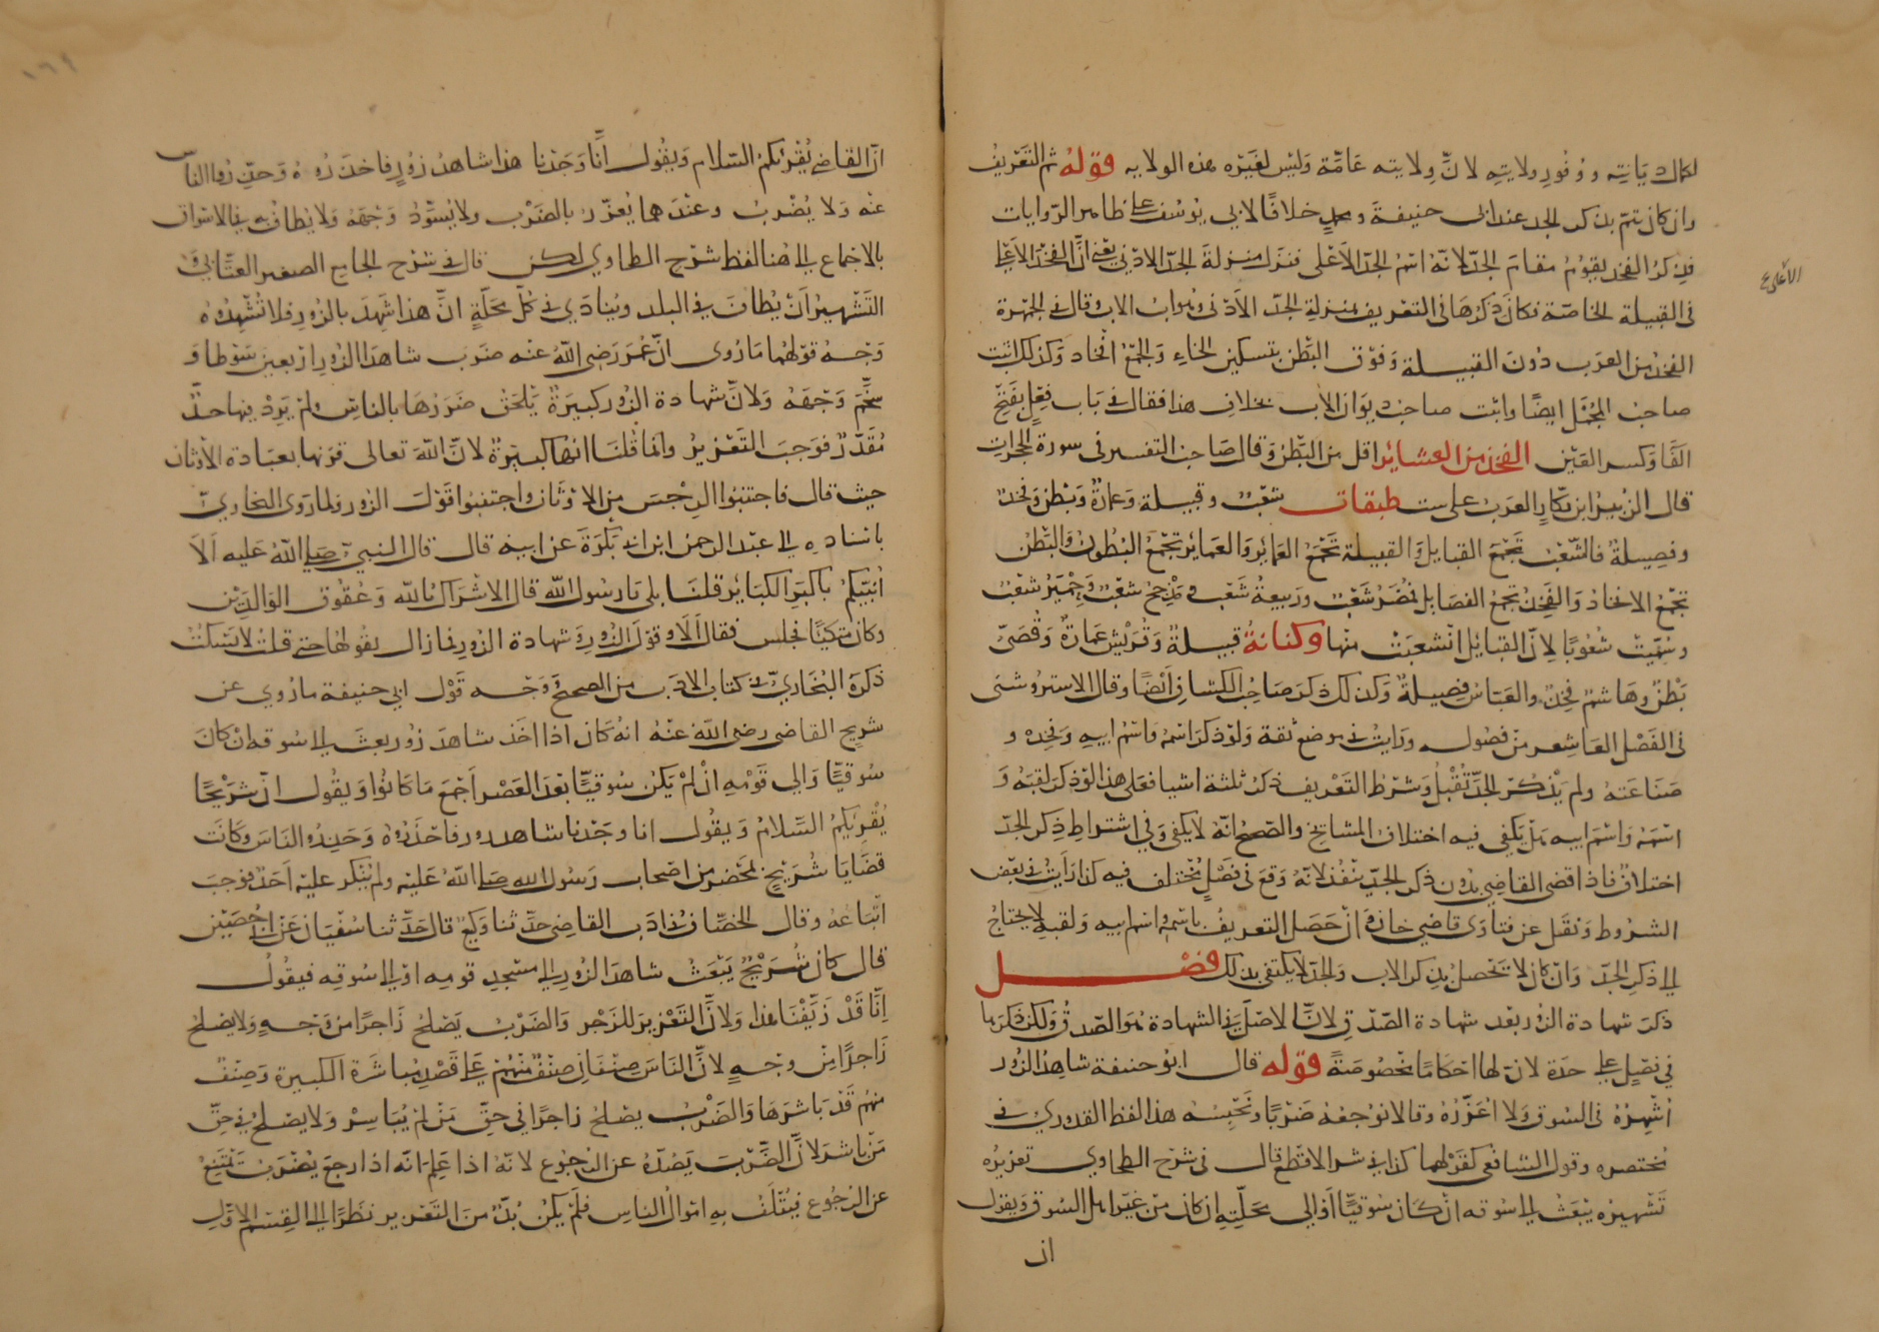 لكمال ديانته ووفور ولايته لانّ ولايته عامّة وليس لغيره هذه الولايه قوله ثم التعريف
وان كان يتمّ بذكر الجد عند ابى حنيفة ومحمدٍ خلافًا لابى يوسف على ظاهر الروايات
فذِكرُ الفخذ يقومُ مقام الجدّ لانّه اسمُ الجدّ الاَعْلى فنزل منزلة الجدّ الادْنى يعنى انّ الفخذ الاَعلى
فى القبيلة الخاصّة فكان ذكرها فى التعريف بمنزلة الجدّ الاَدْنى وهو اب الاب وقال فى الجمهرة
الفخذ من العرب دون القبيلة وفوق البطن بتسكين الخاءِ والجمع افخاد وكذلك اثبت
صاحبُ المُجْمَل ايضًا واثبت صاحب ديوان الادب بخلاف هذا فقال فى باب فِعِل بفتح
الفاءِ وكسر العين الفخذ من العشاير اقل من البطن وقال صاحب التفسير فى سورة الحجرات
قال الزبير ابن بكار العرب على ست طبقات شعبٌ وقبيلة وعمارةٌ وبطن وفخذ
وفصيلةٌ فالشّعْب تجمع القبايل والقبيلة تجمع العماير والعماير تجمع البطون والبطن
تجمع الافخاذ والفخذ تجمع الفصايل فمضر شعب وربيعة شعب ومذحج شعب وحمير شعب
وسُمّيت شعوبًا لانّ القبايل انشعبت منها وكنانة قبيلةٌ وقريش عمارةٌ وقصىّ
بطن وهاشم فخذ والعباس فصيلة وكذلك ذكر صاحب الكشاف ايضًا وقال الاستروشنى
فى الفصل العاشر من فصوله ورايت فى موضع ثقة ولو ذكر اسمه واسم ابيه وفخذه و
صناعته ولم يذكر الجدّ تُقْبلُ وشرط التعريف ذكر ثلثة اشيا فعلى هذا لو ذكر لقبه و
اسمه واسم ابيه هل يكفى فيه اختلاف المشايخ والصحيح انه لا يكفى وفى اشتراط ذكر الجدّ
اختلافٌ فاذا قضى القاضى بدون ذكر الجدّ ينفذ لانه وقع فى فصْلٍ مُختلف فيه كذا رأيت فى بعض
الشروط ونقل عن فتاوى قاضى خان وان حصل التعريف باسمه واسم ابيه ولقبه لا يحتاج
الى ذكر الجدّ وان كان لا يحصل بذكر الاب والجدّ لا يكتفى بذلك فصل
ذكر شهادة الزور بعد شهادة الصّدق لانّ الاصل فى الشهادة هو الصّدق ولكن ذكرها
فى فصْلٍ على حدة لان لها احكامًا مخصوصةً قوله قال ابو حنيفة شاهدُ الزور
اُشهّرهُ فى السوق ولا اعَزّرُهُ وقالا نُوجعهُ ضربًا ونحبسهُ هذا لفظ القدورى فى
مختصره وقول الشافعى كقولهما كذا فى شرح الاقطع قال فى شرح الطحاوى تعزيرُه
تشهيرُه يبعث الى سُوقه ان كان سُوقيًّا او الى محلّته ان كان من غير اهل السوق ويقول
ان
الاعلى ح
١٦٤
ان القاضى يُقرئكم السّلام ويقُول انّا وجدْنا هذا شاهدُ زورٍ فاحذرُوهُ وحذّروا الناس
عنه ولا يُضربُ وعندهما يُعزّر بالضرب ولا يُسوّدُ وجهَهُ ولا يطاف به فى الاسواق
بالاجماع الى هنا لفظ شرح الطحاوى لكن قال فى شرح الجامع الصغير العتّابىّ و
التشهيرُ اَنْ يُطافَ فى البلد ويُنادى فى كلّ محلّةٍ انّ هذا شهد بالزور فلا تُشْهدُوهُ
وجه قولهما ما روى انّ عمر رضى الله عنه ضرب شاهد الزور اربعين سوطا و
سخّم وجهه ولانّ شهادة الزور كبيرةٌ يلحقُ ضررُها بالناس ولم يرد فيها حدٌّ
مقدّرٌ فوجبَ التعزيرُ وانما قُلنا انها كبيرةٌ لانّ الله تعالى قرنها بعبادة الاوثان
حيث قال فاجتنبوا الرجْس من الاوثان واجتنبوا قول الزور ولما روى البخارىّ
باسناده الى عبد الرحمن ابن ابى بكرة عن ابيه قال قال النبىّ صلى الله عليه الا
انبّيكم باكبر الكبائر قلنا بلى يا رسول الله قال الاشراك بالله وعقوق الوالدين
وكان متكيًا فجلس فقال اَلا وقول الزور وشهادة الزور فما زال يقولها حتى قلت لا يسكت
ذكرهُ البُخارىّ فى كتاب الادب من الصحيح وجه قول ابى حنيفة ما روى عن
شريح القاضى رضى الله عنه انه كان اذا اخذ شاهد زور بعث الى سُوقه ان كان
سُوقيًّا والى قومه ان لمْ يكن سُوقيًّا بعد العصر اَجمع ما كانُوا ويقُول انّ شريحًا
يُقريكم السّلام ويقُول انا وجدنا شاهد زور فاحذرُوهُ وحذروه الناس وكانت
قضايا شريحٍ بمحضر من اصحاب رسول الله صلى الله عليه ولم يُنكر عليه اَحدٌ فوجب
اتّباعه وقال الخصّاف فى ادب القاضى حدّثنا وكيعٌ قال حدّثنا سُفيان عن ابى حصين
قال كان شُريْحٌ يبعث شاهد الزور الى مسجد قومه او الى سُوقه فيقُولُ
انّا قدْ زيّفْنا هذا ولانّ التعْزير للزجْر والضرب يصلح زاجرًا من وجهٍ ولا يصلح
زاجرًا من وجهٍ لانّ الناس صنفان صنفٌ منهم على قصْد مُباشرة الكبيرة وصنفٌ
منهم قد باشرها والضرب يصلح زاجرًا فى حقّ من لم يُباشر ولا يصلحُ فى حقّ
من باشر لانّ الضرب يصدّهُ عن الرجوع لانه اذا علم انه اذا رجع يُضرب يمتنعُ
عن الرجوع فيتلف به اموالُ الناس فلم يكن بُدّ من التعزير نظرًا الى القسم الاول